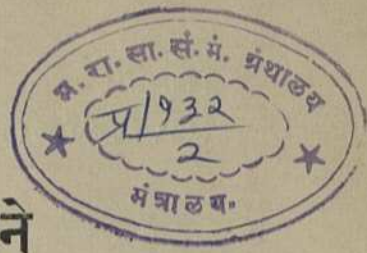 म. रा. सा. सं. मं. ग्रंथालय
प्र/१३२
२
मंत्रालय.
ने